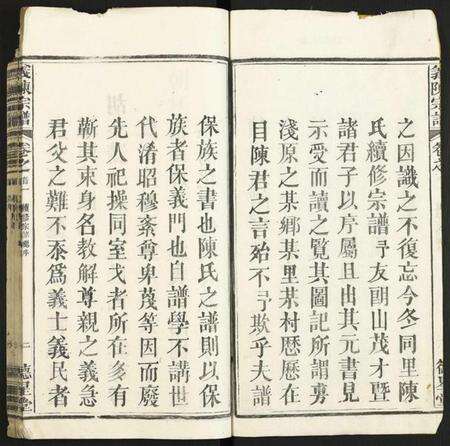 義陳宗譜
之因識之不復忘今冬同里陳
氏續修宗譜予友朗山茂才暨
諸君子以序屬且出其元書見
示受而讀之覽其圖記所謂剪
淺原之某鄉某里某村歷歷在
目陳君之言殆不予欺乎夫譜
保族之書也陳氏之譜則以保
族者保義門也自譜學不講世
代淆昭穆紊尊卑茂等因而廢
先人祀操同室戈者所在多有
蘄其束身名教解尊親之義急
君父之難不忝為義士義民者
義陳宗譜
卷之首
二
德星堂